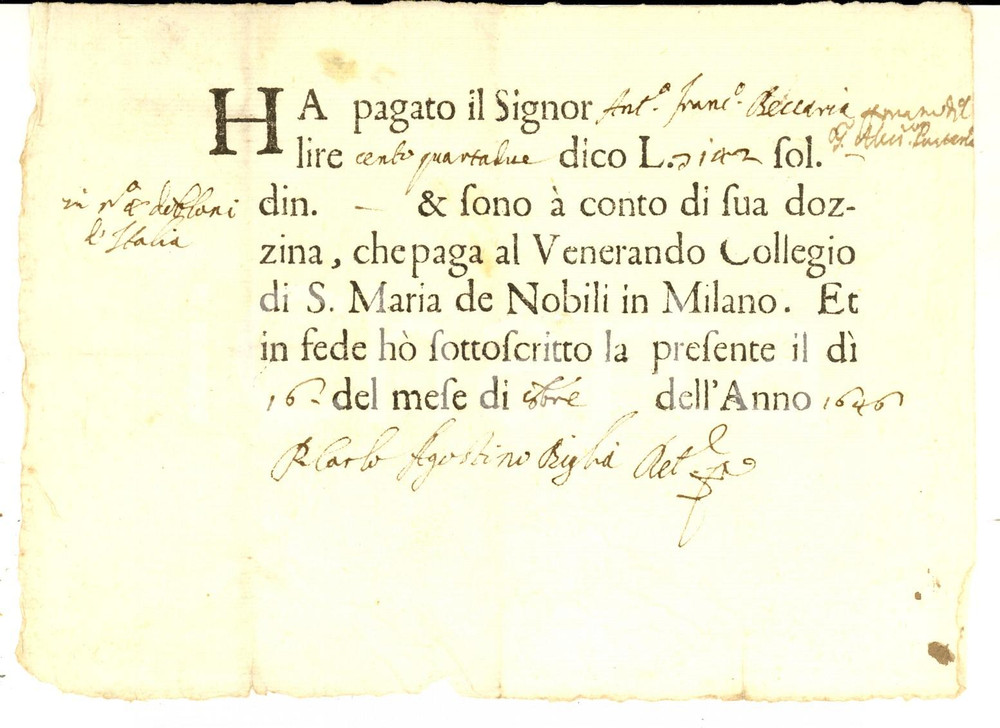 HA pagato il Signor Ant.º franc.º Beccaria
lire cento quartadue dico L. 142 sol.
din. — & ſono à conto di ſua doz-
in
d' Italia
zina, che paga al Venerando Collegio
di S. Maria de Nobili in Milano. Et
in fede hò ſottoſcritto la preſente il dì
16 del meſe di dell'Anno 1646
P. Carlo Agostino Biglia Ret.